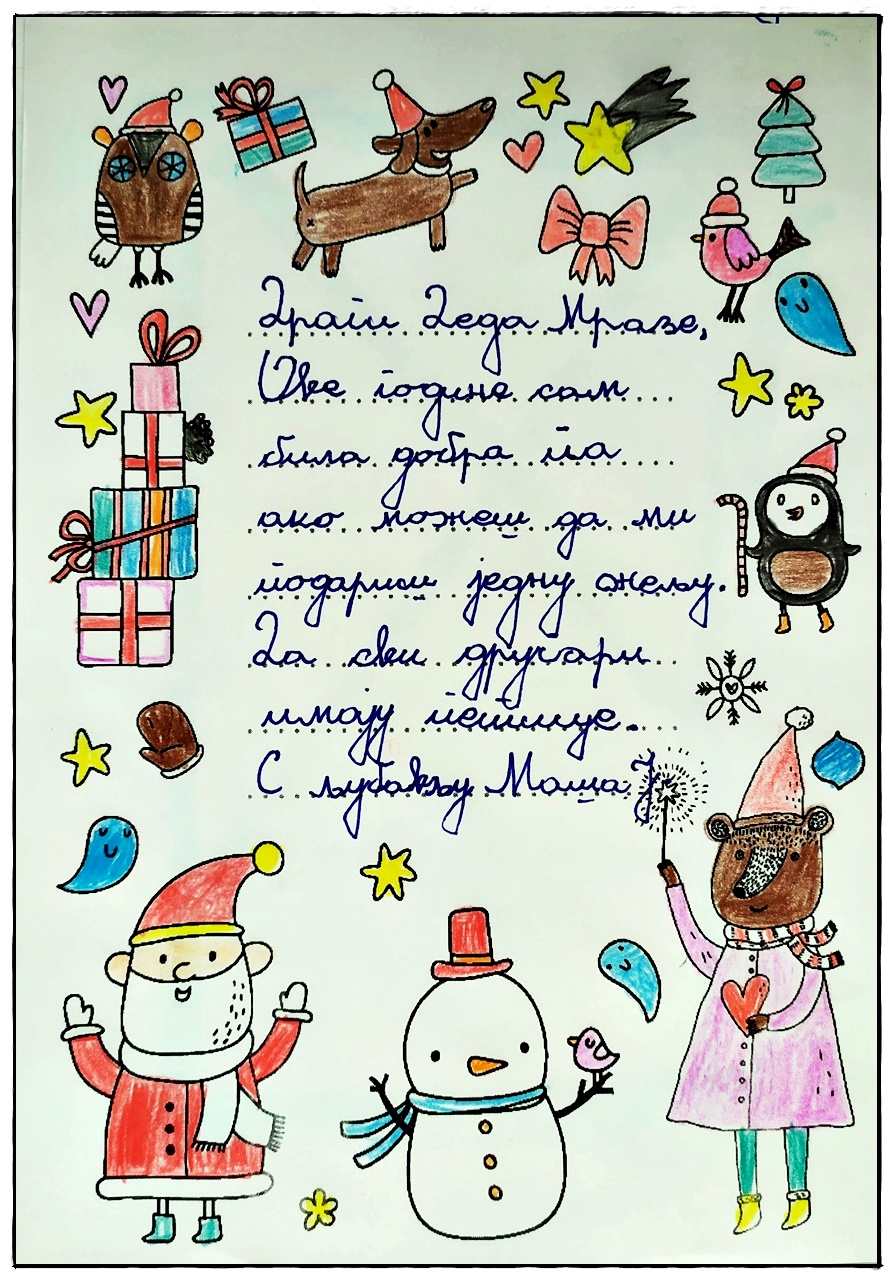 Драги Деда Мразе,
Ове године сам
била добра па
ако можеш да ми
подариш једну жељу.
Да сви другари
имају петице.
С љубављу Маша Ј